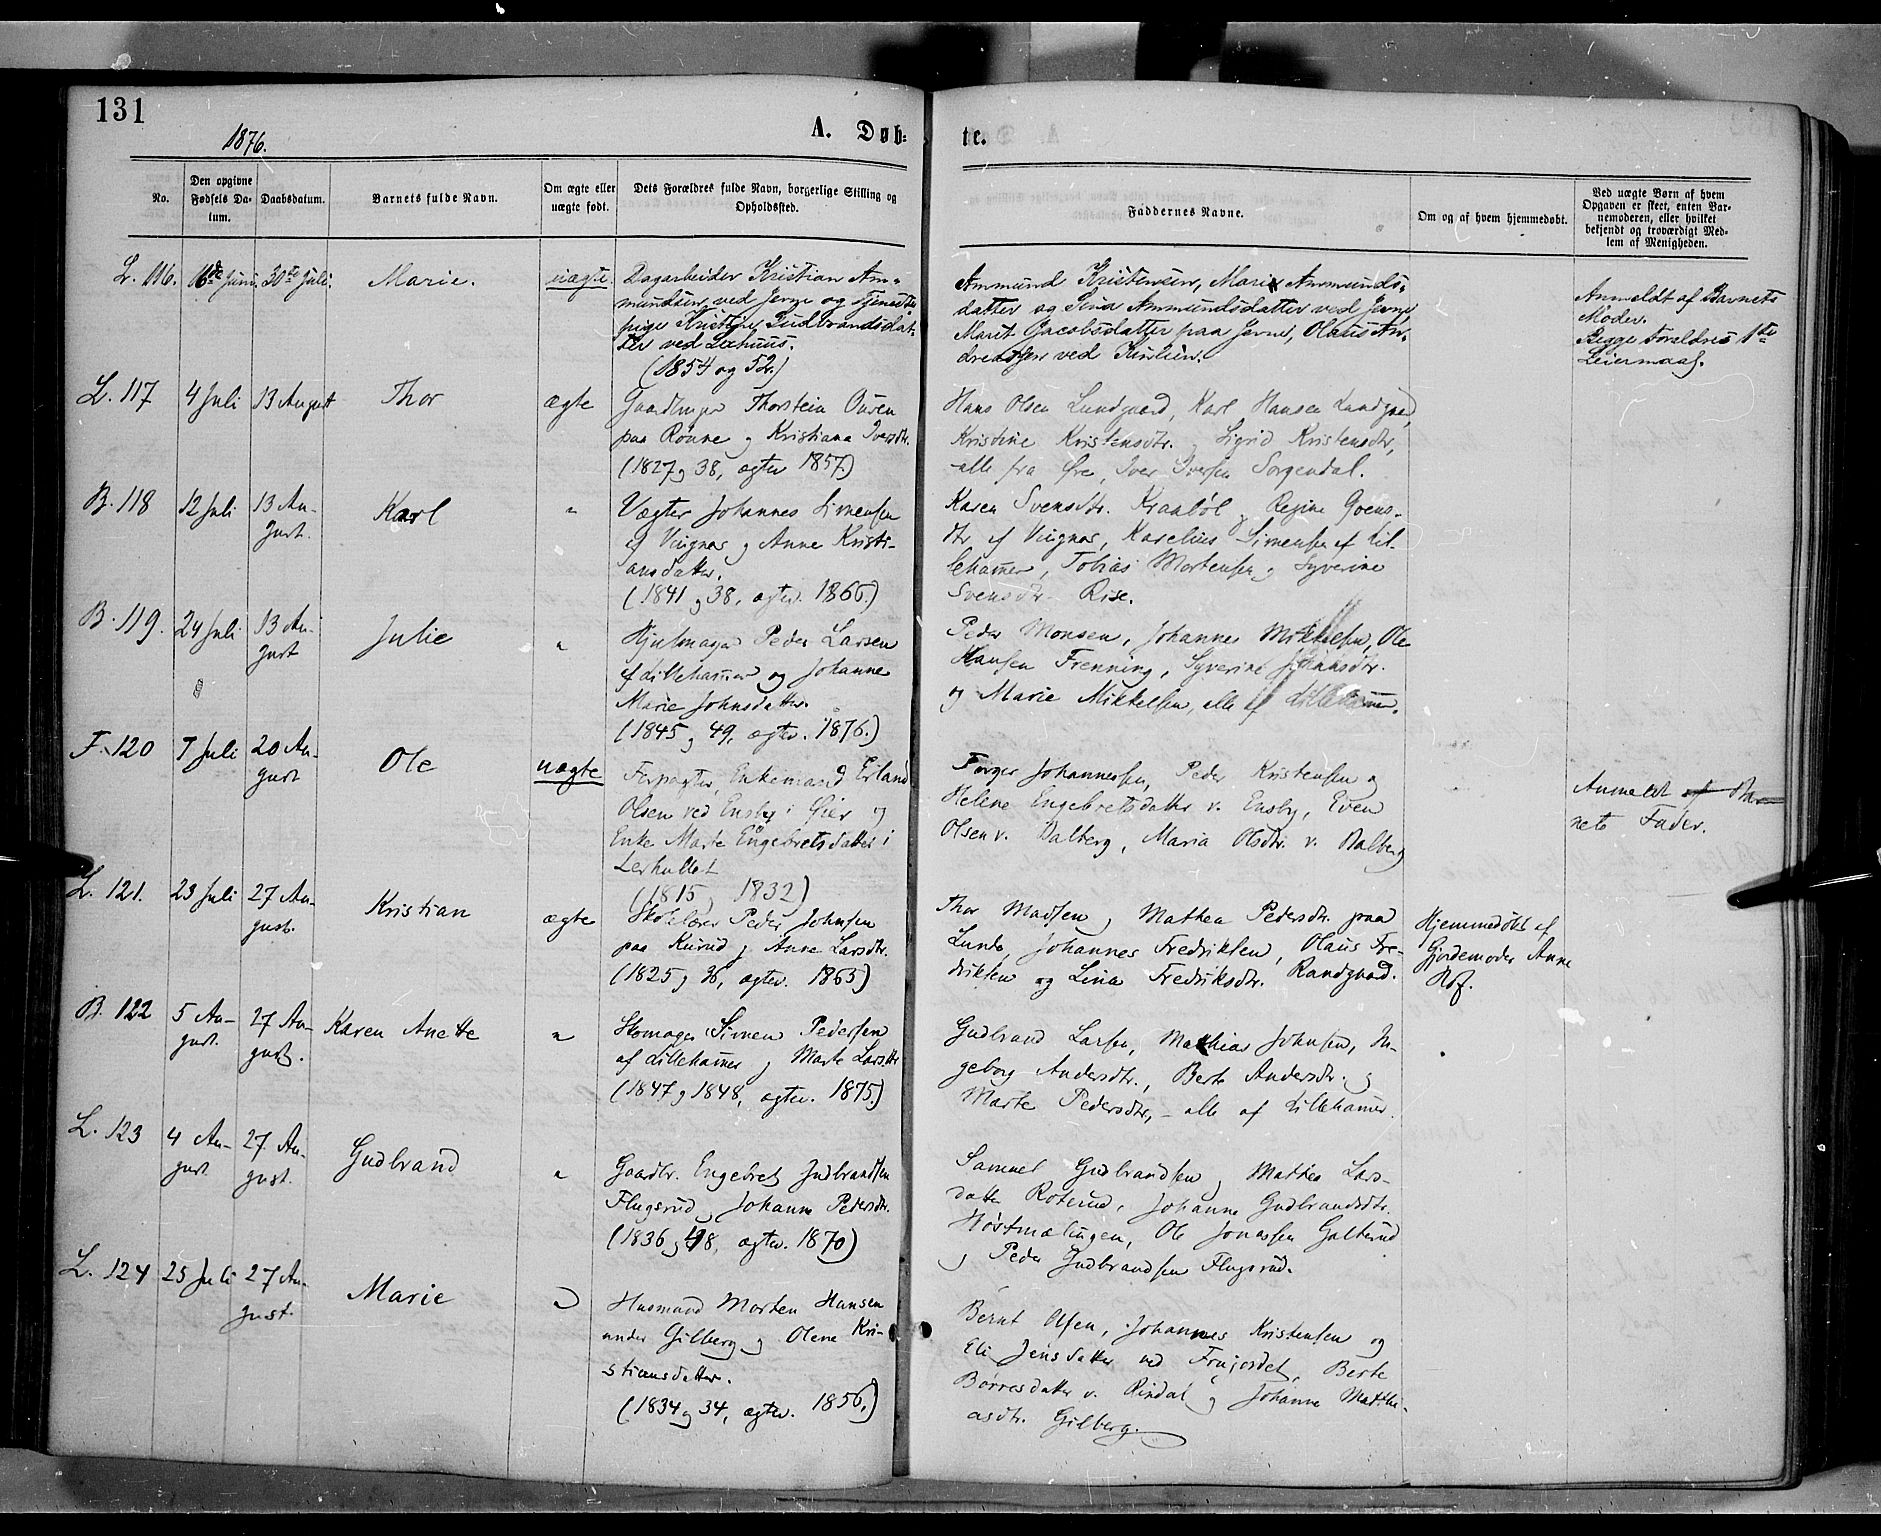 131
1876.
A. Døb-
te.
No.
Den opgivne
Fødsels Da-
tum.
Daabsdatum.
Barnets fulde Navn.
Om ægte eller
uægte født.
Dets Forældres fulde Navn, borgerlige Stilling og
Opholdssted.
Faddernes Navne.
Om og af hvem hjemmedøbt.
Ved uægte Børn af hvem
Opgaven er skeet, enten Bar-
nemoderen, eller hvilket
bekjendt og troværdigt Med-
lem af Menigheden.
L. 116. Juni. 30te Juli. Marie. uægte.
Dagarbeider Kristian Am-
mundsen ved Jevne og Tjeneste-
pige Kristine Gudbrandsdat-
ter ved
(1854 og 52.)
Ammund Kristensen, Marie Ammunds-
datter og Ammundsdatter ved Jevne,
Marit Jacobsdatter paa Jevne, Olaus An-
dreassen ved
Anmeldt af Barnets
Moder.
Begge Forældres 1ste
Leiermaal.
L. 117 4 Juli 13 August Thor ægte
Gaardbruger Thorstein
paa Rönne og Kristiana Iversdtr.
(1827 og 38, ægtev. 1857.)
Hans Olsen Lundgaard, Karl Hansen Lundgaard,
Kristine Kristensdtr. og Sigrid Kristensdtr,
alle fra Øre, Iver Iversen Sorgendal.
B. 118 12 Juli 13 Au-
gust. Karl "
Vægter Johannes Simensen
af Vingnæs og Anne Kristi-
ansdatter.
(1841 og 38, ægtev. 1866.)
Karen Svensdtr. og Regine
dtr af Vingnæs, Karelius Simensen af Lil-
lehamer, Tobias Mortensen og Syverine
Svensdtr Rise.
B. 119. 24 Juli 13 Au-
gust Julie "
Hjulmager Peder Larsen
af Lillehamer og Johanne
Marie Johnsdatter.
(1845 og 49, ægtev. 1876.)
Peder Monsen, Johannes Mikkelsen, Ole
Hansen Frenning, Syverine
og Marie Mikkelsen, alle af Lillehamer.
F. 120 7 Juli 20 Au-
gust Ole uægte
Forpagter, Enkemand Erland
Olsen ved Ensby i Øier og
Enke Marte Engebretsdatter i
Lerhullet
(1815, 1832)
Torger Johannessen, Peder Kristensen og
Helene Engebretsdatter v. Ensby, Even
Olsen v. Dalberg, Maria Olsdtr. v. Dalberg
Anmeldt af Bar-
nets Fader.
L. 121. 23 Juli 27 Au-
gust. Kristian ægte
Skolelærer Peder Johnsen
paa og Anne Larsdtr.
(1825 og 36, ægtev. 1863)
Thor Madsen og Mathea Pedersdtr. paa
Lunde, Johannes Fredriksen, Olaus Fre-
driksen og Lina Fredriksdtr. Randgaard.
Hjemmedøbt af
Gjordemoder Anne
Hof.
B. 122 5 Au-
gust. 27 Au-
gust. Karen Anette "
Skomager Simen Pedersen
af Lillehamer og Marte Larsdtr
(1847 og 1848, ægtev. 1875.)
Gudbrand Larsen, Mathias Johnsen, In-
geborg Andersdtr., Berte Andersdtr. og
Marte Pedersdtr, - alle af Lillehamer.
L. 123 4 Au-
gust. 27 Au-
gust. Gudbrand "
Gaardbr. Engebret Gudbrandsen
Flugsrud og Johanne Pedersdtr.
(1836 og 48, ægtev. 1870)
Samuel Gudbrandsen og Mathea Lars-
datter Roterud, Johanne Gudbrandsdtr.
Høstmælingen, Ole Jonassen Galterud
og Peder Gudbrandsen Flugsrud.
L. 124 25 Juli 27 Au-
gust. Marie "
Husmand Morten Hansen
under Gilberg og Olene Kri-
stiansdatter.
(1834 og 34, ægtev. 1856.)
Bernt Olsen, Johannes Kristensen og
Eli Jensdatter ved Frujordet, Berte
Børresdatter v. Rindal og Johanne Matthi-
asdtr. Gilberg.